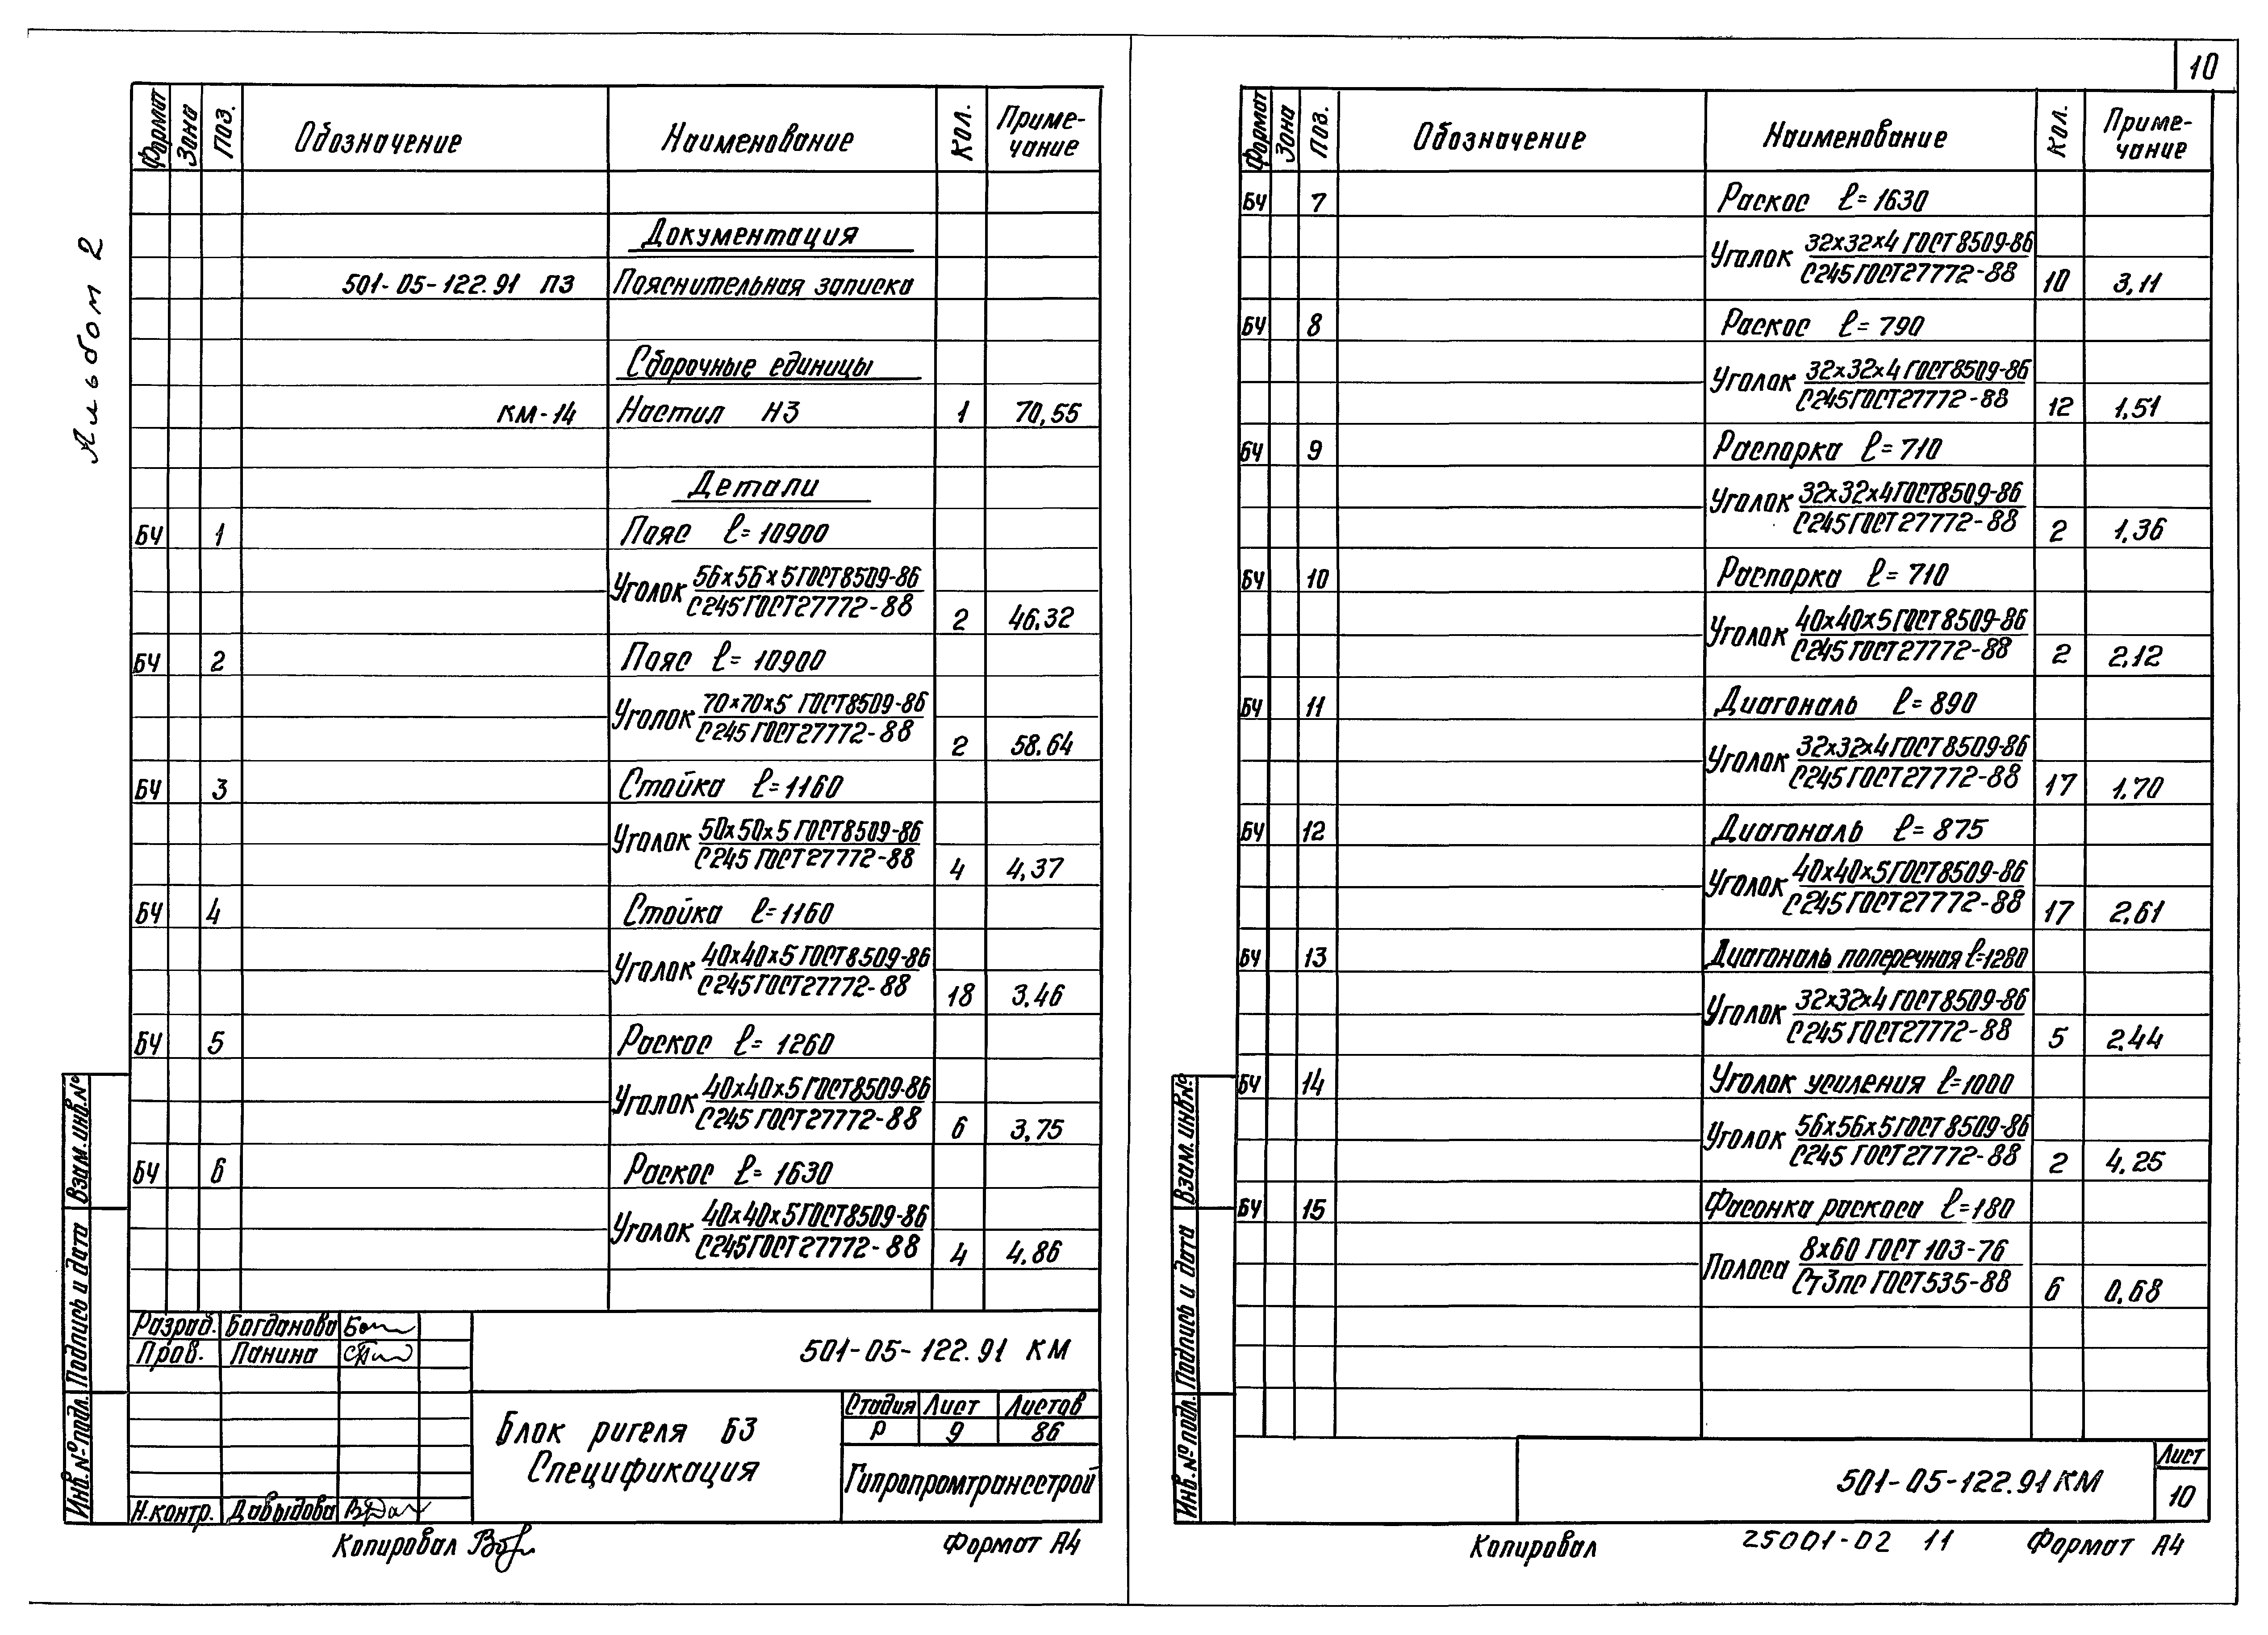 10
Альбом 2
Формат Зона Поз. Обозначение Наименование Кол. Приме-
чание
Документация
501-05-122.91 ПЗ Пояснительная записка
Сборочные единицы
КМ-14 Настил Н3 1 70,55
Детали
БЧ 1 Пояс ℓ=10900
Уголок 56х56х5 ГОСТ 8509-86
С245 ГОСТ 27772-88 2 46.32
БЧ 2 Пояс ℓ=10900
Уголок 70х70х5 ГОСТ 8509-86
С245 ГОСТ 27772-88 2 58.64
БЧ 3 Стойка ℓ=1160
Уголок 50х50х5 ГОСТ 8509-86
С245 ГОСТ 27772-88 4 4,37
БЧ 4 Стойка ℓ=1160
Уголок 40х40х5 ГОСТ 8509-86
С245 ГОСТ 27772-88 18 3,46
БЧ 5 Раскос ℓ=1260
Уголок 40х40х5 ГОСТ 8509-86
С245 ГОСТ 27772-88 6 3,75
БЧ 6 Раскос ℓ=1630
Уголок 40х40х5 ГОСТ 8509-86
С245 ГОСТ 27772-88 4 4,86
Взам. инв. №
Подпись и дата
Инв. № подл.
Разраб. Богданова
Пров. Панина
Н.контр. Давыдова
501-05-122.91 КМ
Блок ригеля Б3
Спецификация
Стадия Лист Листов
Р 9 86
Гипропромтрансстрой
Копировал
Формат А4
Формат Зона Поз. Обозначение Наименование Кол. Приме-
чание
БЧ 7 Раскос ℓ=1630
Уголок 32х32х4 ГОСТ 8509-86
С245 ГОСТ 27772-88 10 3,11
БЧ 8 Раскос ℓ=790
Уголок 32х32х4 ГОСТ 8509-86
С245 ГОСТ 27772-88 12 1,51
БЧ 9 Распорка ℓ=710
Уголок 32х32х4 ГОСТ 8509-86
С245 ГОСТ 27772-88 2 1,36
БЧ 10 Распорка ℓ=710
Уголок 40х40х5 ГОСТ 8509-86
С245 ГОСТ 27772-88 2 2,12
БЧ 11 Диагональ ℓ=890
Уголок 32х32х4 ГОСТ 8509-86
С245 ГОСТ 27772-88 17 1.70
БЧ 12 Диагональ ℓ=875
Уголок 40х40х5 ГОСТ 8509-86
С245 ГОСТ 27772-88 17 2,61
БЧ 13 Диагональ поперечная ℓ=1280
Уголок 32х32х4 ГОСТ 8509-86
С245 ГОСТ 27772-88 5 2,44
БЧ 14 Уголок усиления ℓ=1000
Уголок 56х56х5 ГОСТ 8509-86
С245 ГОСТ 27772-88 2 4,25
БЧ 15 Фасонка раскоса ℓ=180
Полоса 8х60 ГОСТ 103-76
Ст3пс ГОСТ 535-88 6 0,68
Взам. инв. №
Подпись и дата
Инв. № подл.
501-05-122.91 КМ
Лист
10
Копировал
25001-02 11
Формат А4